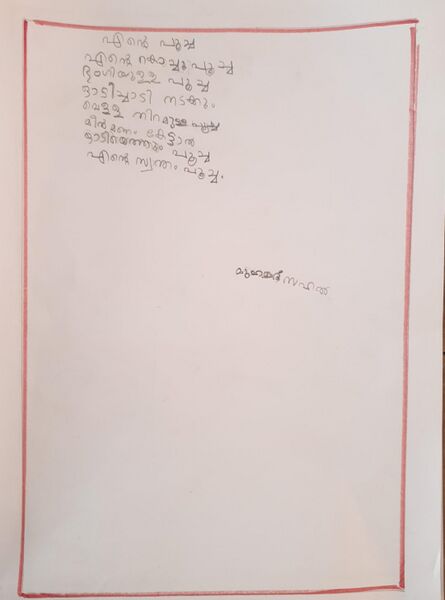 എന്റെ പൂച്ച
എന്റെ കൊച്ചു പൂച്ച
ഭംഗിയുള്ള പൂച്ച
ചാടിച്ചാടി നടക്കും
വെള്ള നിറമുള്ള പൂച്ച
മീൻ മണം കേട്ടാൽ
ഓടിയെത്തും പൂച്ച
എന്റെ സ്വന്തം പൂച്ച.
മുഹമ്മദ് സഹൽ